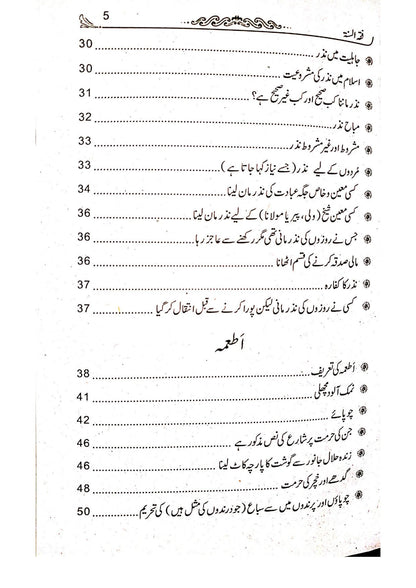 فقہ السنۃ 5
جاہلیت میں نذر 30
اسلام میں نذر کی مشروعیت 30
نذر ماننا کب صحیح اور کب غیر صحیح ہے؟ 31
مباح نذر 32
مشروط اور غیر مشروط نذر 33
مُردوں کے لیے نذر (جسے نیاز کہا جاتا ہے) 33
کسی معین و خاص جگہ عبادت کی نذر مان لینا 34
کسی معین شیخ (ولی، پیر یا مولانا) کے لیے نذر مان لینا 36
جس نے روزوں کی نذر مانی تھی مگر رکھنے سے عاجز رہا 36
مالی صدقہ کرنے کی قسم اٹھانا 36
نذر کا کفارہ 37
کسی نے روزوں کی نذر مانی لیکن پورا کرنے سے قبل انتقال کر گیا 37
اَطعمہ
اَطعمہ کی تعریف 38
نمک آلود مچھلی 41
چوپائے 42
جن کی حرمت پر شارع کی نص مذکور ہے 46
زندہ حلال جانور سے گوشت کا پارچہ کاٹ لینا 46
گدھے اور خچر کی حرمت 48
چوپاؤں اور پرندوں میں سے سباع (جو درندوں کی مثل ہیں) کی تحریم 50